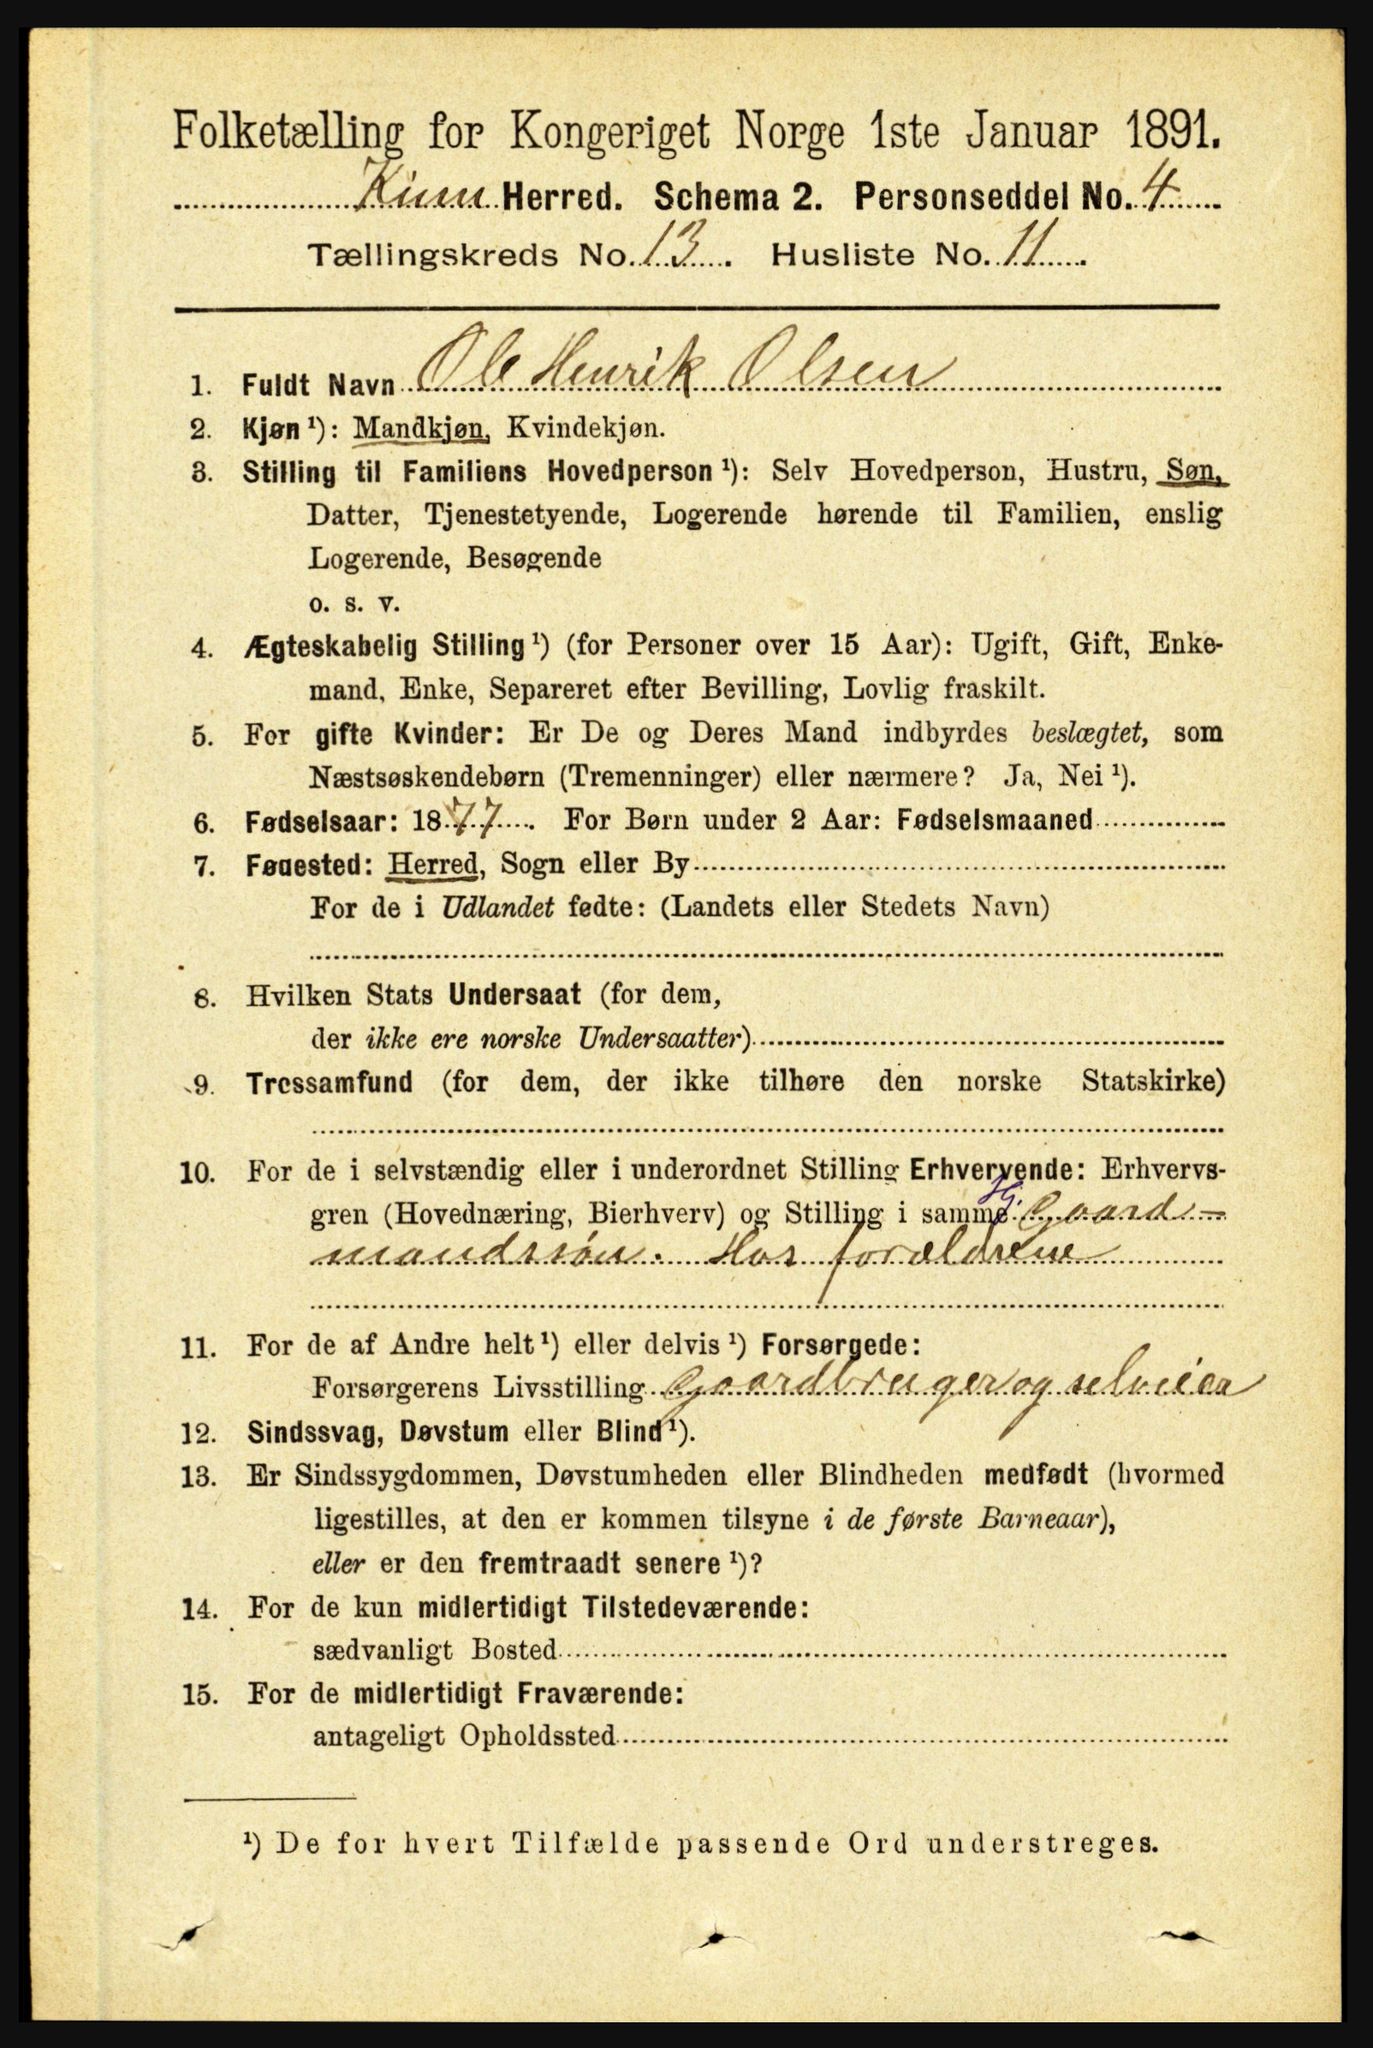 Folketælling for Kongeriget Norge 1ste Januar 1891.
Kinn Herred. Schema 2. Personseddel No. 4
Tællingskreds No. 13. Husliste No. 11
1. Fuldt Navn Ole Henrik Olsen
2. Kjøn ¹): Mandkjøn, Kvindekjøn.
3. Stilling til Familiens Hovedperson ¹): Selv Hovedperson, Hustru, Søn,
Datter, Tjenestetyende, Logerende hørende til Familien, enslig
Logerende, Besøgende
o. s. v.
4. Ægteskabelig Stilling ¹) (for Personer over 15 Aar): Ugift, Gift, Enke-
mand, Enke, Separeret efter Bevilling, Lovlig fraskilt.
5. For gifte Kvinder: Er De og Deres Mand indbyrdes beslægtet, som
Næstsøskendebørn (Tremenninger) eller nærmere? Ja, Nei ¹).
6. Fødselsaar: 1877. For Børn under 2 Aar: Fødselsmaaned
7. Føuested: Herred, Sogn eller By
For de i Udlandet fødte: (Landets eller Stedets Navn)
8. Hvilken Stats Undersaat (for dem,
der ikke ere norske Undersaatter)
9. Trossamfund (for dem, der ikke tilhøre den norske Statskirke)
10. For de i selvstændig eller i underordnet Stilling Erhvervende: Erhvervs-
gren (Hovednæring, Bierhverv) og Stilling i samme Gaard-
mandssøn. Hos forældrene
11. For de af Andre helt ¹) eller delvis ¹) Forsørgede:
Forsørgerens Livsstilling Gaardbruger og selveier
12. Sindssvag, Døvstum eller Blind ¹).
13. Er Sindssygdommen, Døvstumheden eller Blindheden medfødt (hvormed
ligestilles, at den er kommen tilsyne i de første Barneaar),
eller er den fremtraadt senere ¹)?
14. For de kun midlertidigt Tilstedeværende:
sædvanligt Bosted
15. For de midlertidigt Fraværende:
antageligt Opholdssted
¹) De for hvert Tilfælde passende Ord understreges.